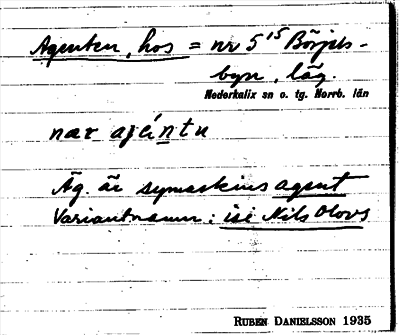 Agenten, hos = nr 5¹⁵ Börjels-
byn, läg.
Nederkalix sn o. tg. Norrb. län
nar ajéntu
Äg. är symaskinsagent
Variantnamn: isi Nils Olovs
RUBEN DANIELSSON 1935